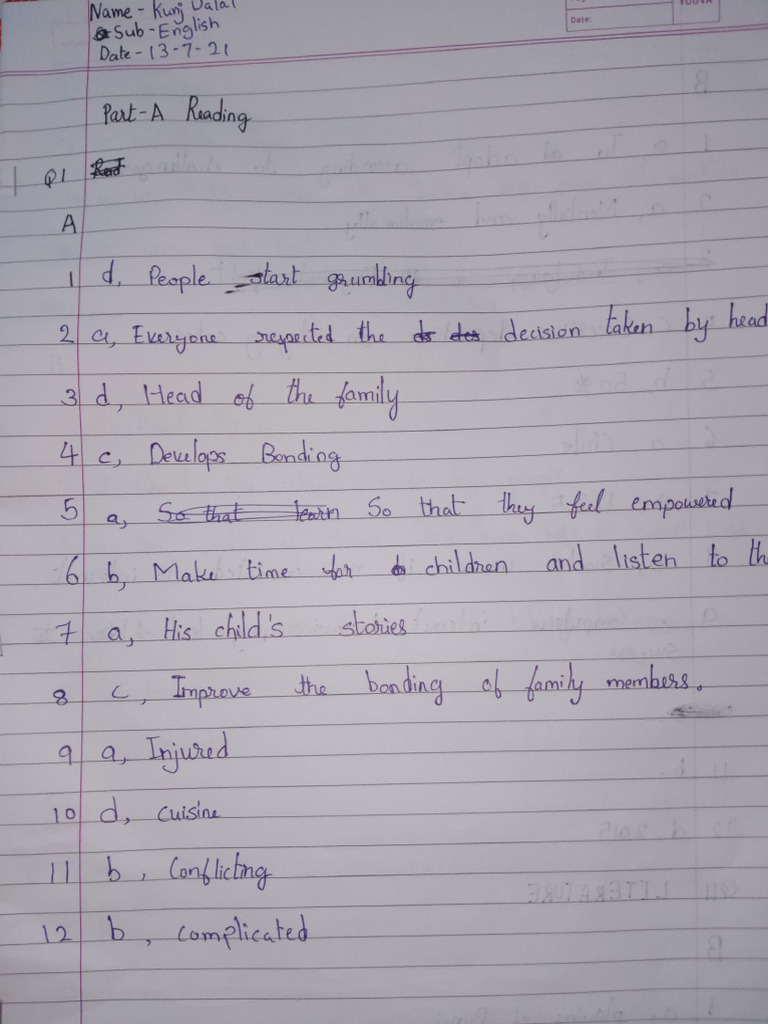 Name - Kunj Dalal
Sub - English
Date - 13-7-21
Date:
YOUVA
Part-A Reading
Q1
A
1 d, People start grumbling
2 a, Everyone respected the decision taken by head
3 d, Head of the family
4 c, Develops Bonding
5 a, So that they feel empowered
6 b, Make time for children and listen to th
7 a, His child's stories
8 c, Improve the bonding of family members.
9 a, Injured
10 d, cuisine
11 b, Conflicting
12 b, complicated